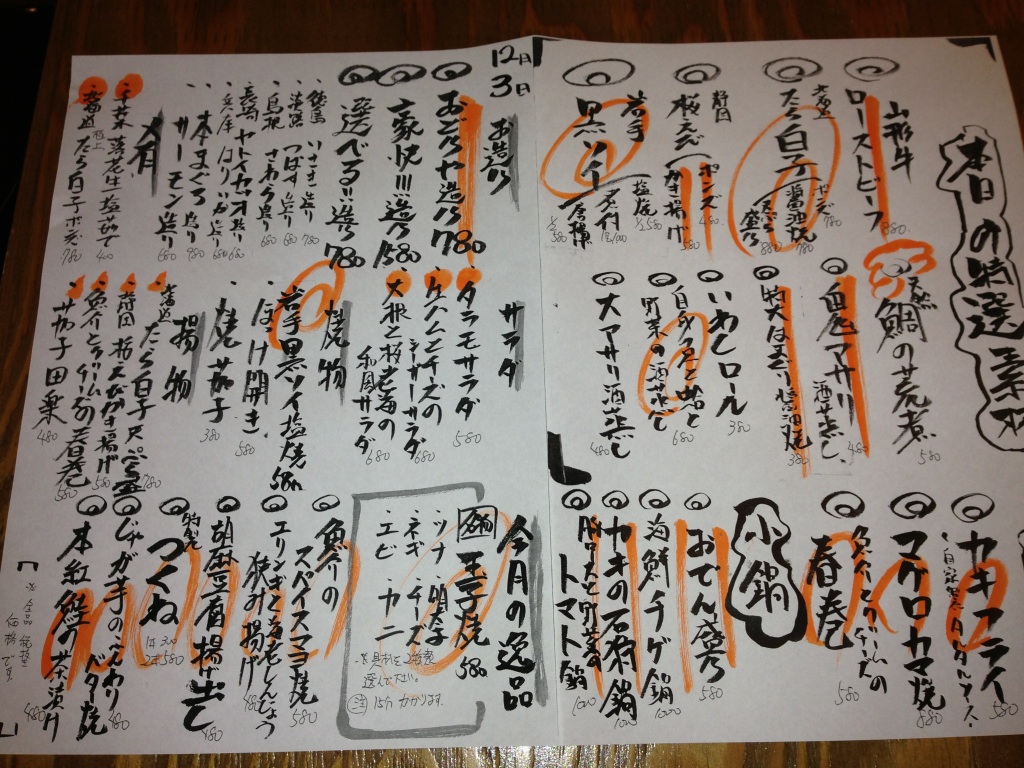 本日の特選素材
山形牛
ローストビーフ
880
北海道
たら白子
ポンズ 780
醤油焼 780
天ぷら 880
静岡
桜えび
ポンズ 480
かき揚げ 580
岩手
黒ソイ
塩焼 1/2 580
天然
鯛の荒煮
580
白尾マサリ
酒蒸し
480
特大はまぐり醤油焼
380
いわしロール
白身魚と蛤と
野菜の酒蒸し
680
大アサリ酒蒸し
480
カキフライ
580
マグロカマ焼
880
魚介とクリームチーズの
春巻
580
小鍋
おでん盛り
580
海鮮チゲ鍋
1000
カキの石狩鍋
1000
トマト鍋
12月3日
お造り
おどろき造り 780
豪快!!!造り 1580
選べる!!造り 780
いさき造り 780
淡路 つばす造り 680
島根 さわら造り 680
長崎 ヤトカマス造り 680
兵庫 はりいか造り 680
本まぐろ造り 780
サーモン造り 680
肴
千葉 落花生塩茹で 400
北海道 たら白子ポンズ 780
サラダ
タラモサラダ
580
生ハムとチーズの
シーザーサラダ
680
大根と桜海老の
和風サラダ
680
焼物
岩手黒ソイ塩焼
580
ほっけ開き
580
焼茄子
380
揚物
北海道 たら白子天ぷら
780
静岡 桜えびかき揚げ
580
魚介とクリームチーズの春巻
580
茄子田楽
480
今月の逸品
玉子焼 580
・ツナ ・明太子
・ネギ ・チーズ
・エビ ・カニ
※具材を2種程
選んで下さい。
注 15分かかります。
魚介の
スパイスマヨ焼
580
エリンギと海老しんじょう
挟み揚げ
480
胡麻豆腐揚げ出し
480
特製
つくね
1本 300
2本 580
じゃが芋のこんがり
バター焼
480
本紅鮭の茶漬け
480
※全品税抜
価格です。